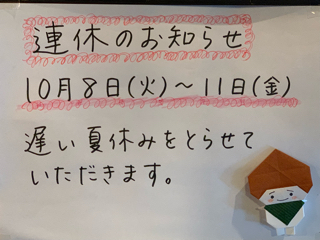 連休のお知らせ
10月8日(火)〜11日(金)
遅い夏休みをとらせて
いただきます。